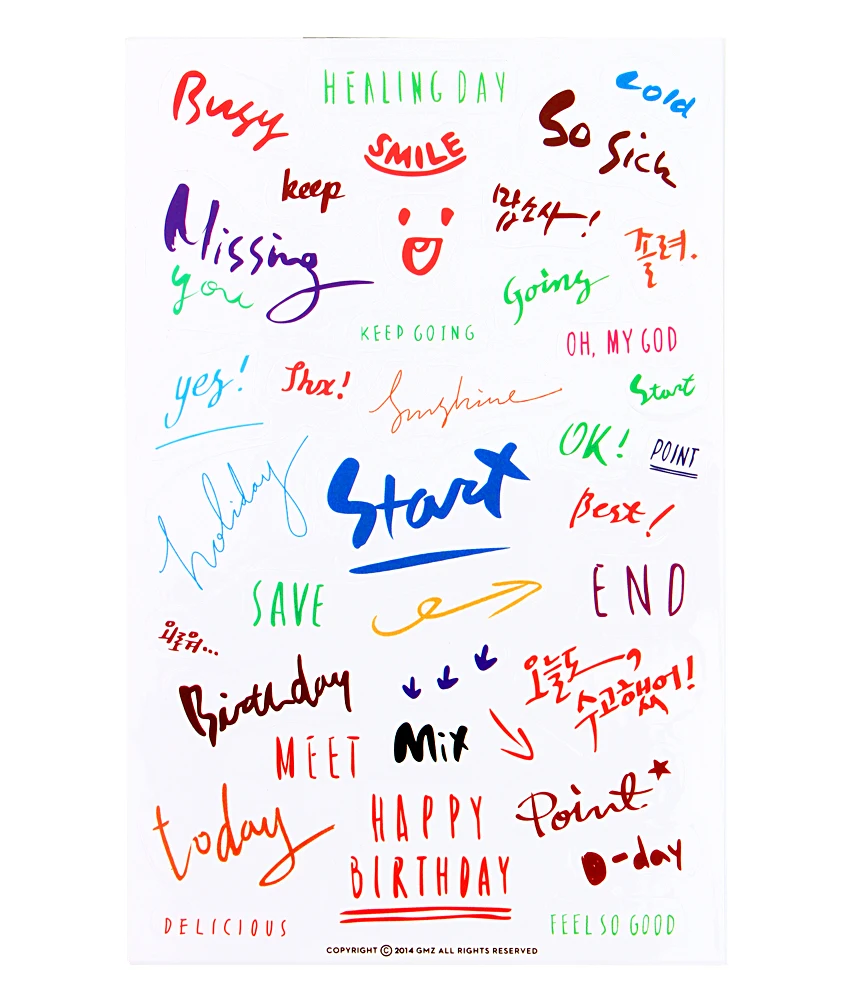 Busy
HEALING DAY
cold
So Sick
SMILE
keep
맙소사!
Missing
you
졸려.
Going
KEEP GOING
OH, MY GOD
yes!
Thx!
Sunshine
Start
OK!
POINT
holiday
Start
Best!
SAVE
END
외로워...
Birthday
오늘도,
수고했어!
MEET
Mix
today
HAPPY
BIRTHDAY
Point*
D-day
DELICIOUS
FEEL SO GOOD
COPYRIGHT © 2014 GMZ ALL RIGHTS RESERVED